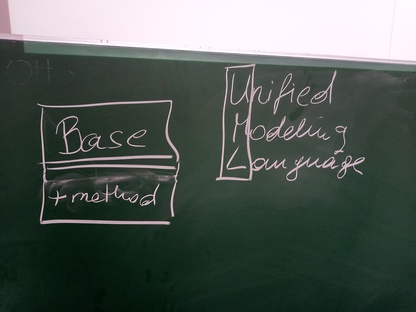 Base
+ method
Unified
Modeling
Language